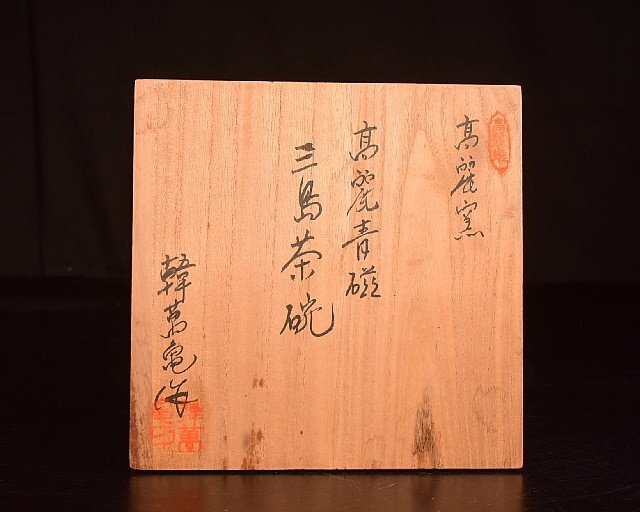 高麗窯
高麗青磁
三島茶碗
韓萬亀作